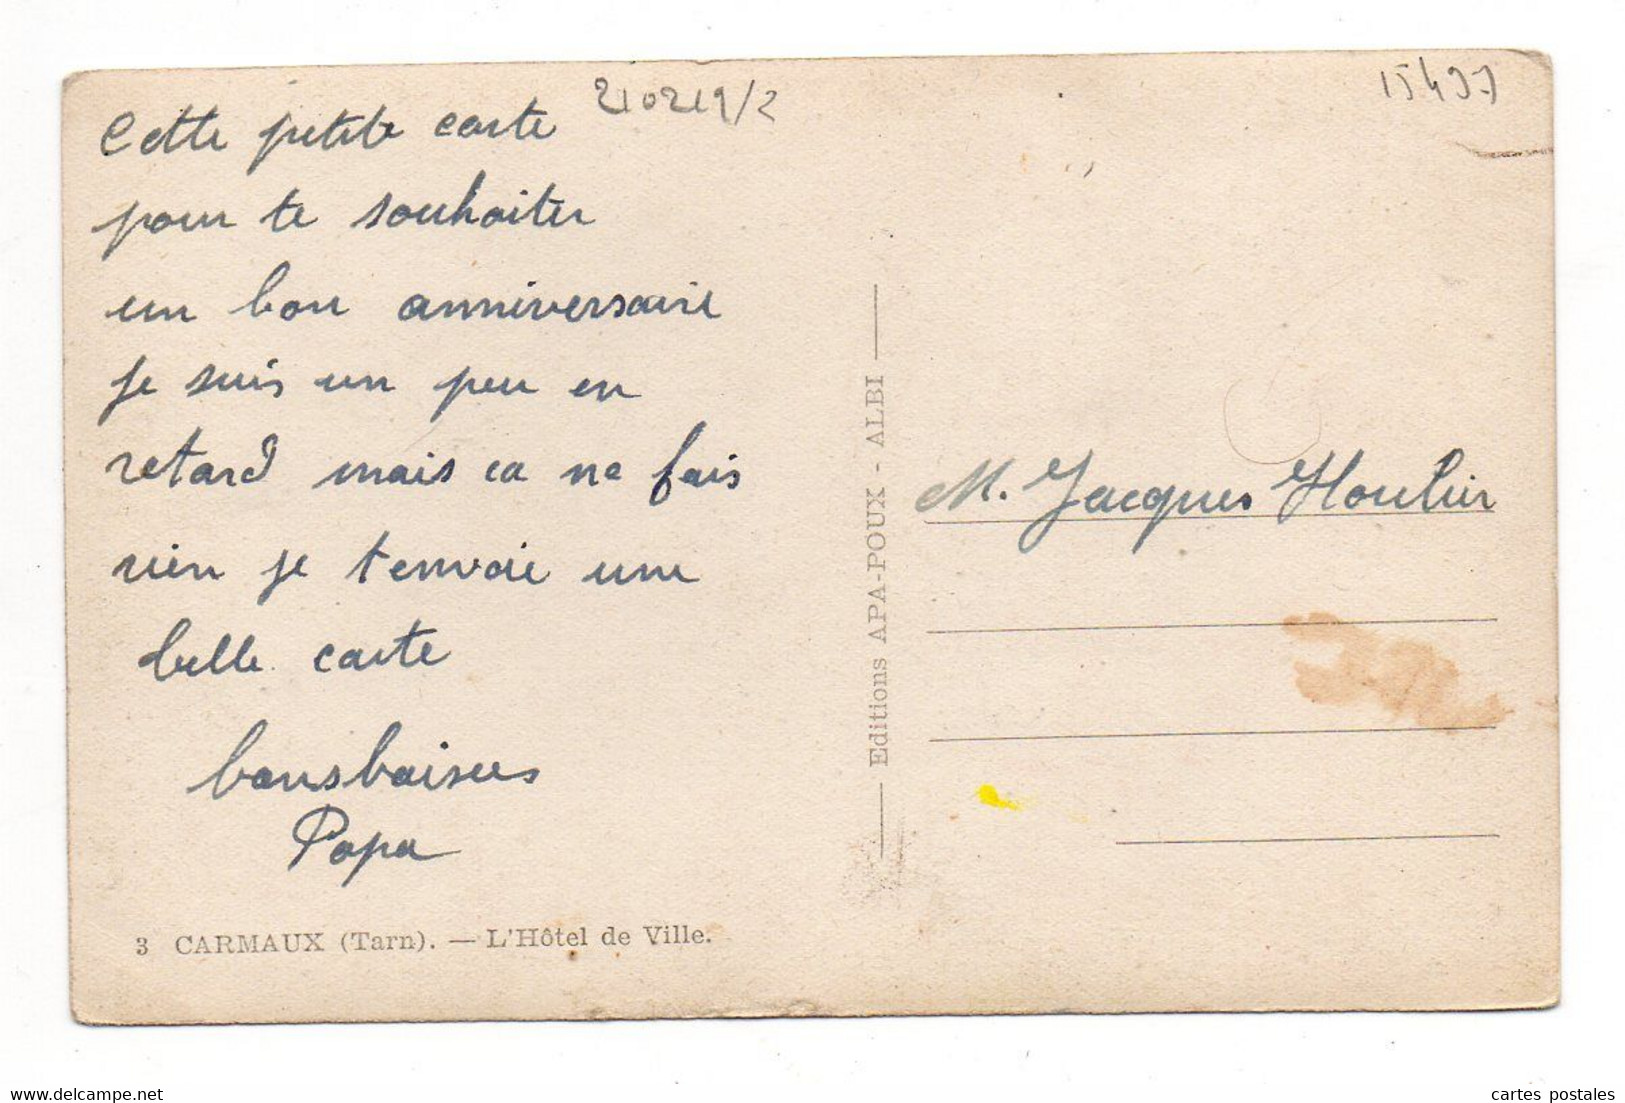 210219/2
15497
Cette petite carte
pour te souhaiter
un bon anniversaire
je suis un peu en
retard mais ca ne fais
rien je t envoie une
belle carte
bons baisers
Papa
3 CARMAUX (Tarn). — L'Hôtel de Ville.
Editions APA-POUX - ALBI
M. Jacques
delcampe.net
cartes postales